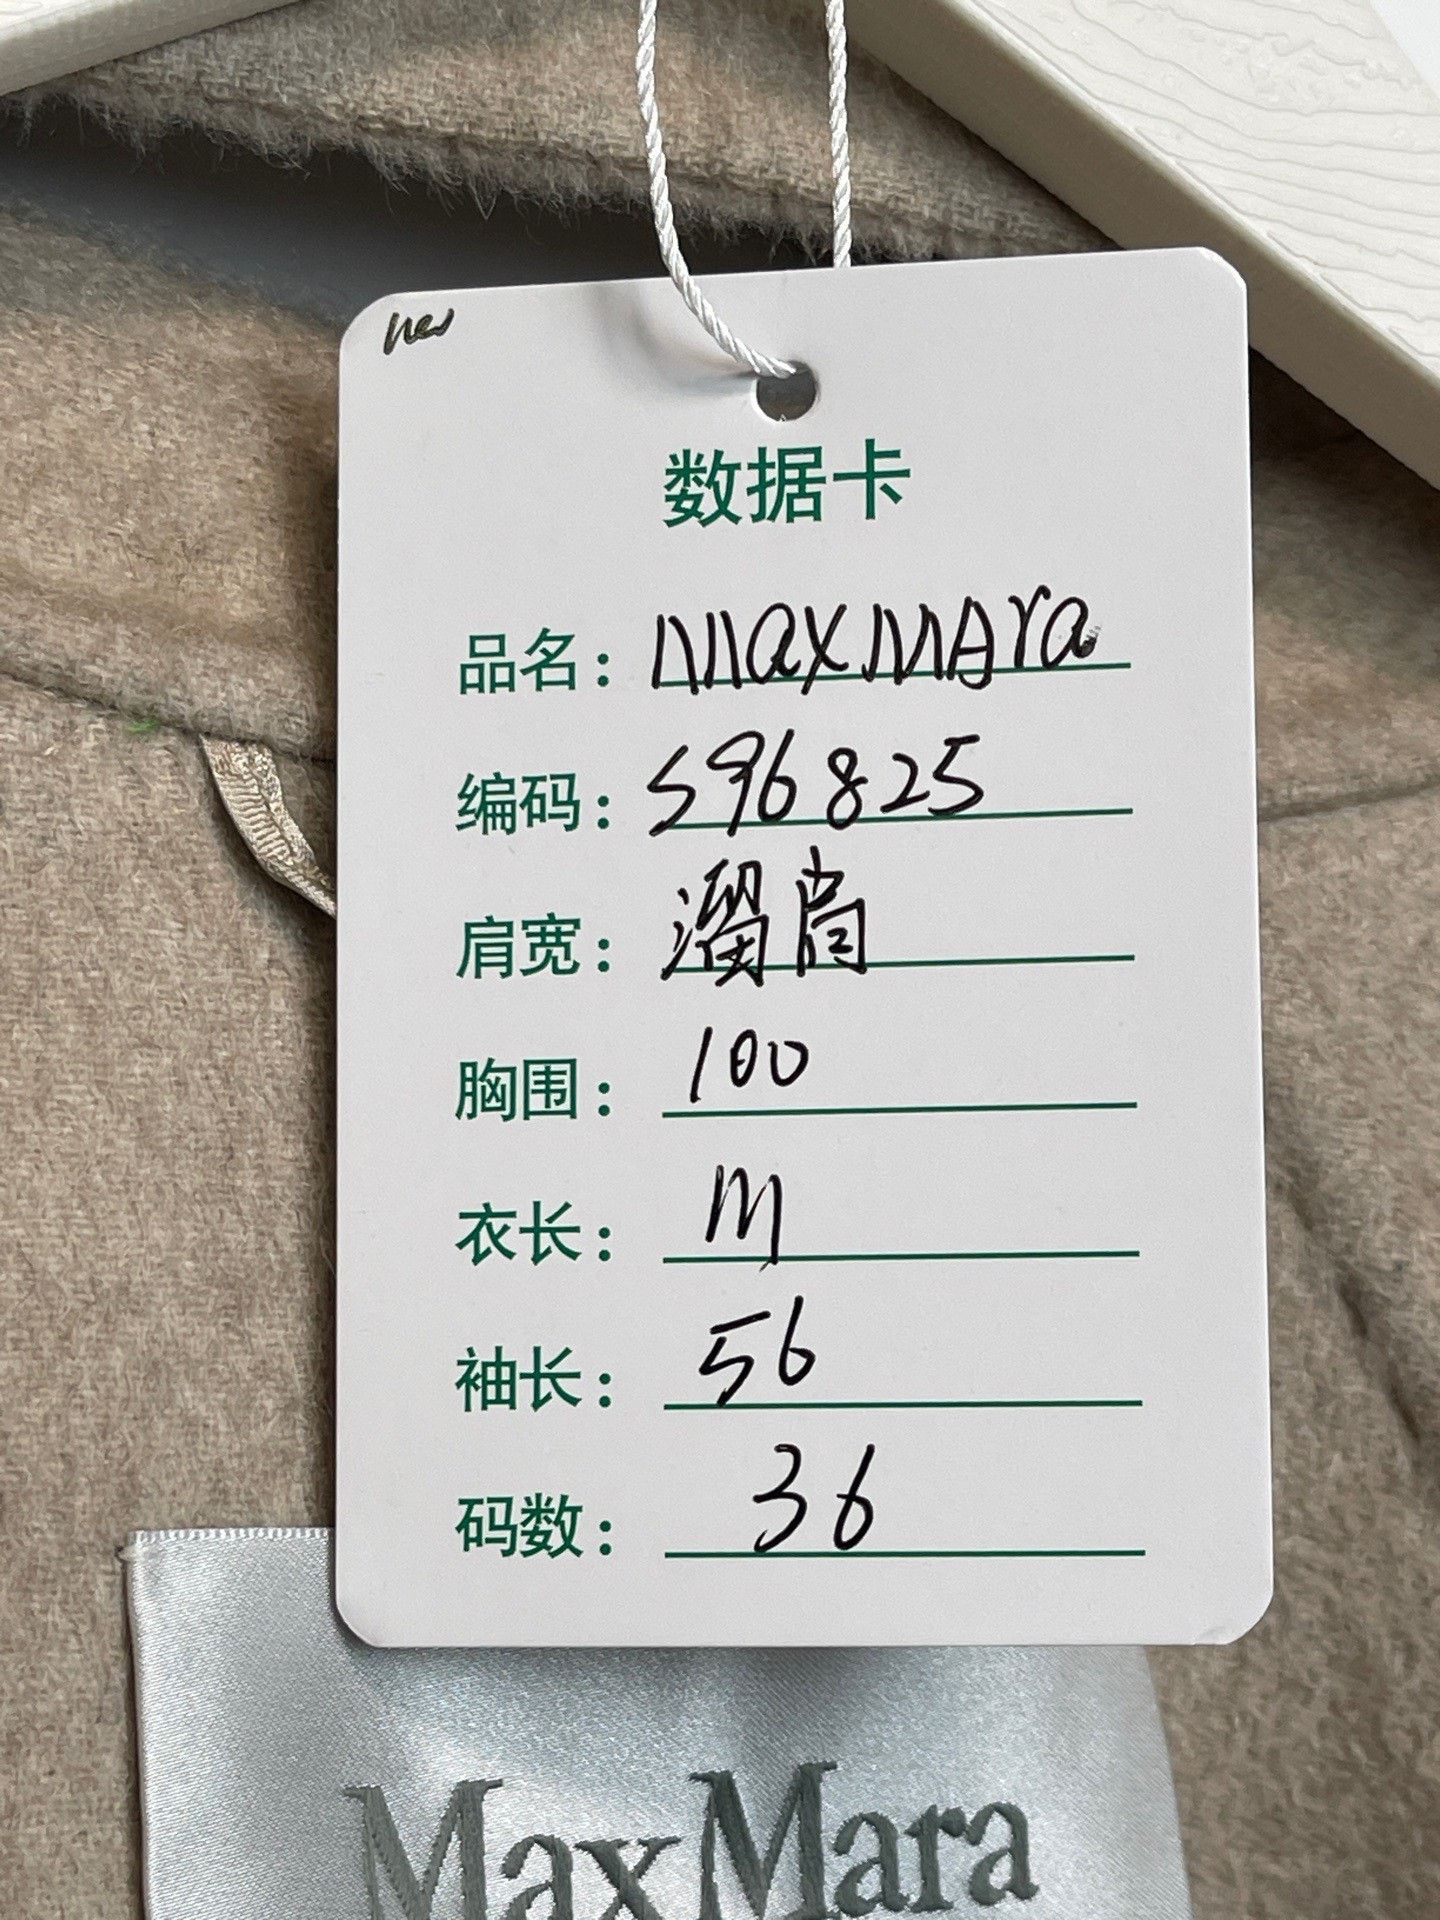 new
数据卡
品名：MaxMAra
编码：S96825
肩宽：溜肩
胸围：100
衣长：111
袖长：56
码数：36
MaxMara